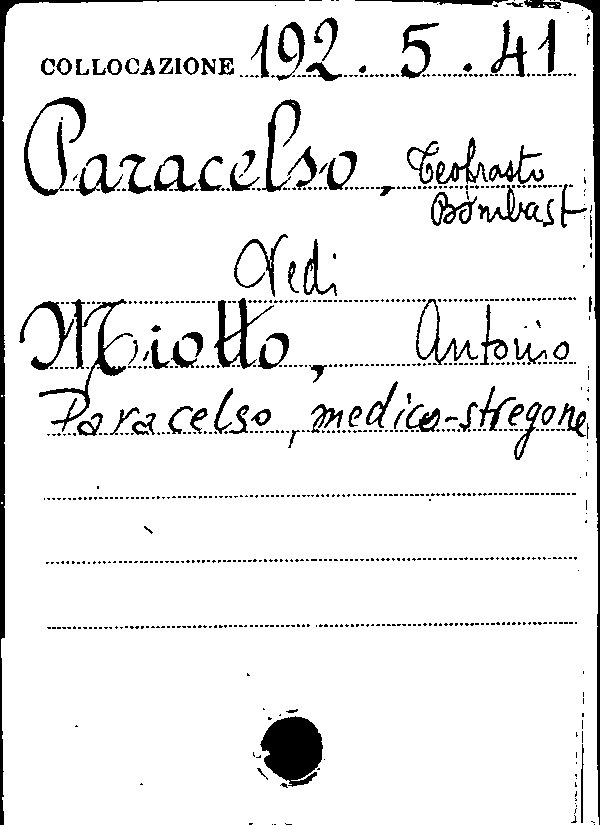 COLLOCAZIONE 192.5.41
Paracelso, Teofrasto
Bombast
Vedi
Miotto, Antonio
Paracelso, medico-stregone